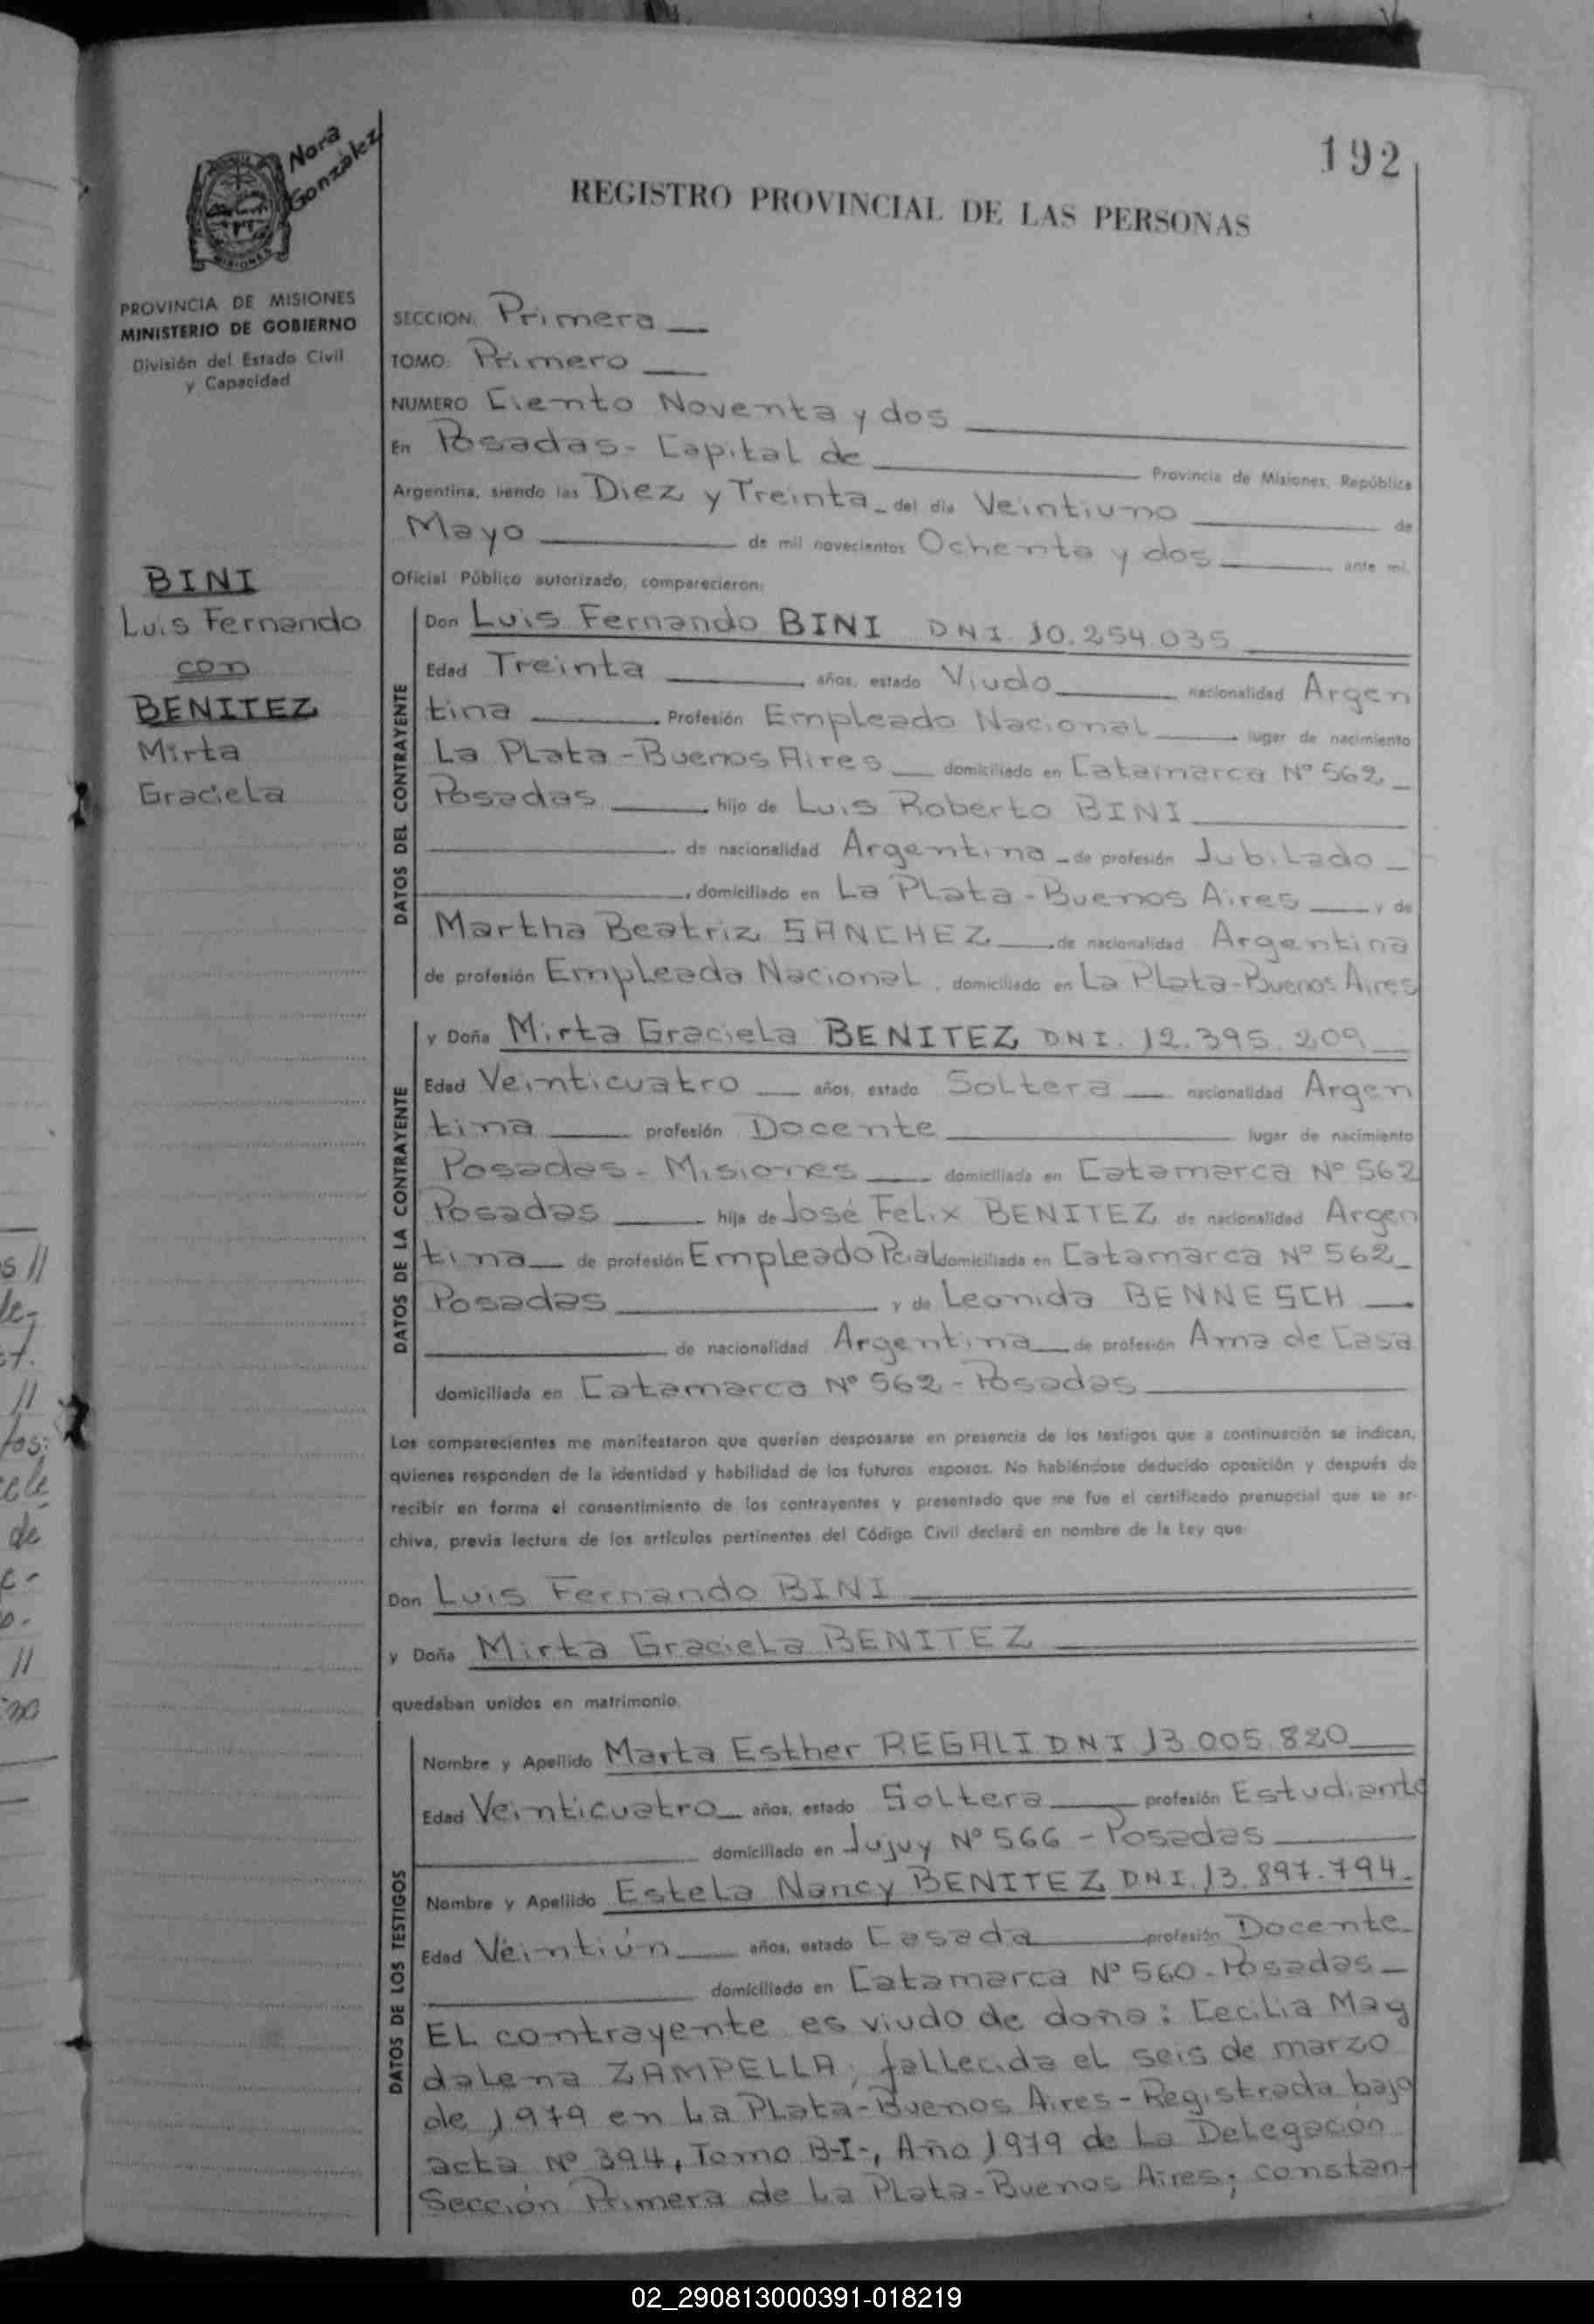 Nora
González
192
REGISTRO PROVINCIAL DE LAS PERSONAS
MISIONES
PROVINCIA DE MISIONES
MINISTERIO DE GOBIERNO
División del Estado Civil
y Capacidad
BINI
Luis Fernando
con
BENITEZ
Mirta
Graciela
SECCION: Primera
TOMO: Primero
NUMERO Ciento Noventa y dos
En Posadas - Capital de Provincia de Misiones, República
Argentina, siendo las Diez y Treinta del día Veintiuno de
Mayo de mil novecientos Ochenta y dos ante mi,
Oficial Público autorizado, comparecieron:
DATOS DEL CONTRAYENTE
Don Luis Fernando BINI DNI. 10.254.035
Edad Treinta años, estado Viudo nacionalidad Argen
tina Profesión Empleado Nacional lugar de nacimiento
La Plata - Buenos Aires domiciliado en Catamarca Nº 562
Posadas hijo de Luis Roberto BINI
de nacionalidad Argentina de profesión Jubilado
, domiciliado en La Plata - Buenos Aires y de
Martha Beatriz SANCHEZ de nacionalidad Argentina
de profesión Empleada Nacional, domiciliado en La Plata - Buenos Aires
DATOS DE LA CONTRAYENTE
y Doña Mirta Graciela BENITEZ DNI. 12.395.209
Edad Veinticuatro años, estado Soltera nacionalidad Argen
tina profesión Docente lugar de nacimiento
Posadas - Misiones domiciliada en Catamarca Nº 562
Posadas hija de José Felix BENITEZ de nacionalidad Argen
tina de profesión Empleado Pcial domiciliada en Catamarca Nº 562
Posadas y de Leonida BENNESCH
de nacionalidad Argentina de profesión Ama de Casa
domiciliada en Catamarca Nº 562 - Posadas
Los comparecientes me manifestaron que querían desposarse en presencia de los testigos que a continuación se indican,
quienes responden de la identidad y habilidad de los futuros esposos. No habiéndose deducido oposición y después de
recibir en forma el consentimiento de los contrayentes y presentado que me fue el certificado prenupcial que se ar-
chiva, previa lectura de los artículos pertinentes del Código Civil declaré en nombre de la Ley que:
Don Luis Fernando BINI
y Doña Mirta Graciela BENITEZ
quedaban unidos en matrimonio.
DATOS DE LOS TESTIGOS
Nombre y Apellido Marta Esther REGALI DNI 13.005.820
Edad Veinticuatro años, estado Soltera profesión Estudiante
domiciliado en Jujuy Nº 566 - Posadas
Nombre y Apellido Estela Nancy BENITEZ DNI. 13.897.794.
Edad Veintiún años, estado Casada profesión Docente
domiciliado en Catamarca Nº 560 - Posadas
EL contrayente es viudo de doña: Cecilia Mag
dalena ZAMPELLA, fallecida el seis de marzo
de 1979 en La Plata - Buenos Aires - Registrada bajo
acta Nº 394, Tomo B-I-, Año 1979 de La Delegación
Sección Primera de La Plata - Buenos Aires; constan-
02_290813000391-018219